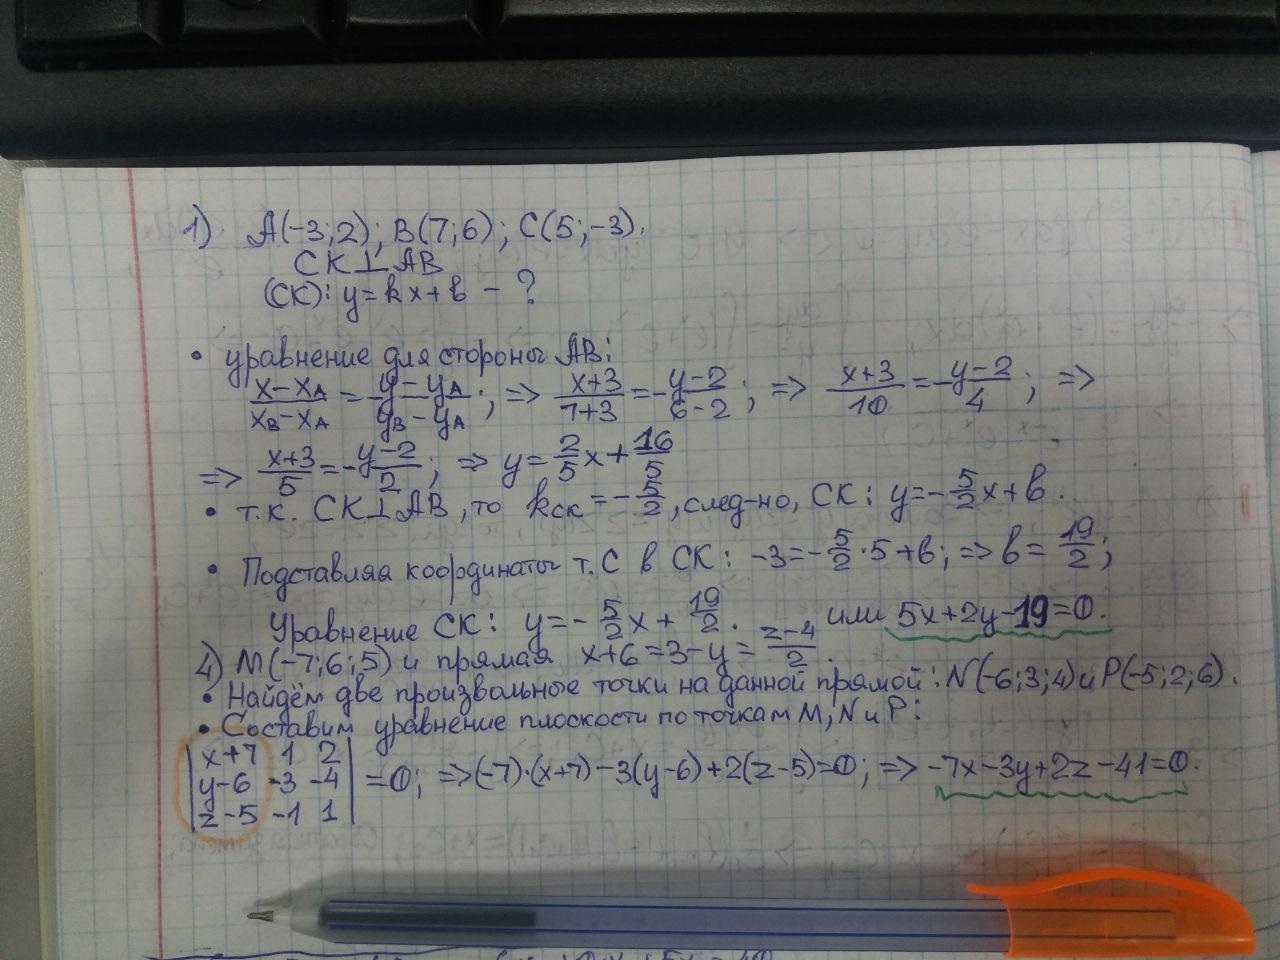 1) A(-3;2); B(7;6); C(5;-3).
CK⊥AB
(CK): y=kx+b - ?
• уравнение для стороны AB:
(x-x_A)/(x_B-x_A) = (y-y_A)/(y_B-y_A); => (x+3)/(7+3) = (y-2)/(6-2); => (x+3)/10 = (y-2)/4; =>
=> (x+3)/5 = (y-2)/2; => y = 2/5 x + 16/5
• т.к. CK⊥AB, то k_CK = -5/2, след-но, CK: y = -5/2 x + b.
• Подставляя координаты т. C в CK: -3 = -5/2·5 + b; => b = 19/2;
Уравнение CK: y = -5/2 x + 19/2. или 5x+2y-19=0.
4) M(-7;6;5) и прямая x+6=3-y=(z-4)/2.
• Найдём две произвольные точки на данной прямой: N(-6;3;4) и P(-5;2;6).
• Составим уравнение плоскости по точкам M, N и P:
|x+7 1 2|
|y-6 -3 -4| =0; =>(-7)·(x+7)-3(y-6)+2(z-5)=0; => -7x-3y+2z-41=0.
|z-5 -1 1|